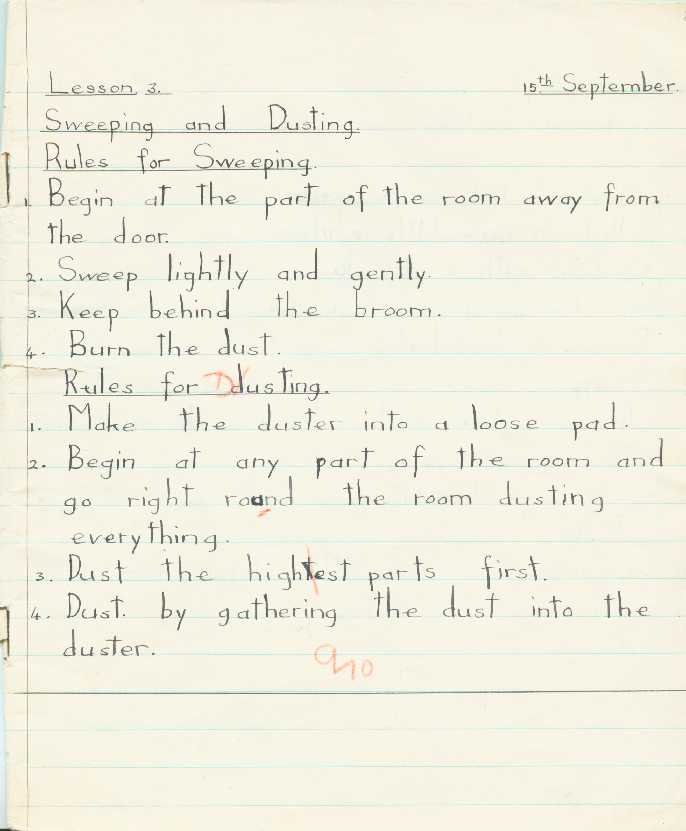 Lesson 3. 15th September.
Sweeping and Dusting.
Rules for Sweeping.
1. Begin at the part of the room away from
the door.
2. Sweep lightly and gently.
3. Keep behind the broom.
4. Burn the dust.
Rules for Ddusting.
1. Make the duster into a loose pad.
2. Begin at any part of the room and
go right round the room dusting
everything.
3. Dust the hightest parts first.
4. Dust. by gathering the dust into the
duster.
9/10